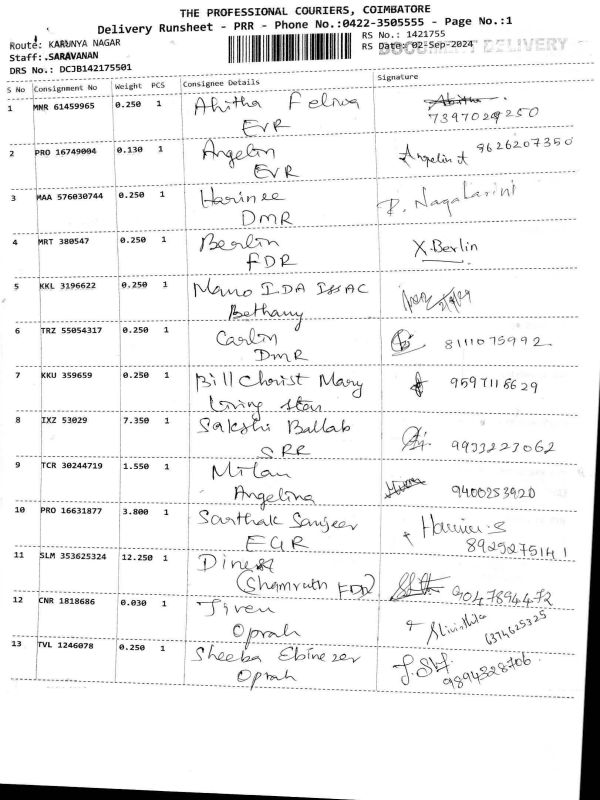 THE PROFESSIONAL COURIERS, COIMBATORE
Delivery Runsheet - PRR - Phone No.:0422-3505555 - Page No.:1
Route: KARUNYA NAGAR
RS No.: 1421755
Staff:.SARAVANAN
RS Date: 02-Sep-2024
DOCUMENT DELIVERY
DRS No.: DCJB142175501
S No Consignment No Weight PCS Consignee Details Signature
1 MNR 61459965 0.250 1 Ahitha Felina
EVR
7397029250
2 PRO 16749004 0.130 1 Angelin Angelin A 9626207350
EVR
3 MAA 576030744 0.250 1 Harinee R. Nagalarini
DMR
4 MRT 380547 0.250 1 Berlin X.Berlin
FDR
5 KKL 3196622 0.250 1 Mano IDA ISSAC
Bethany
6 TRZ 55054317 0.250 1 Carlin 8111075992
DMR
7 KKU 359659 0.250 1 Bill Christ Mary 9597118629
living star
8 IXZ 53029 7.350 1 Sakshi Ballab 9933223062
SRR
9 TCR 30244719 1.550 1 Milan 9400253920
Angelina
10 PRO 16631877 3.800 1 Sarthak Sanjeer
EGR 8925275141
11 SLM 353625324 12.250 1 Dinesh
(Shamruth FDR) 9047894472
12 CNR 1818686 0.030 1 Jiven
Oprah 6374625325
13 TVL 1246078 0.250 1 Sheeba Ebinezer
Oprah 9894328706